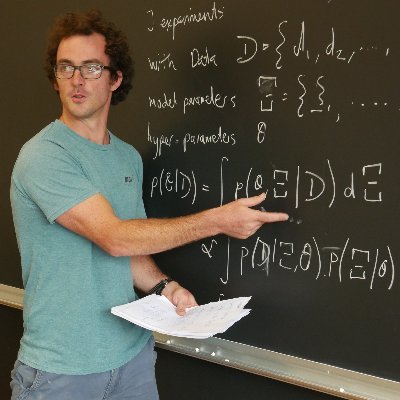 J experiments
with Data D = { d₁, d₂, ...,
model parameters Ξ = { ξ₁, ....
hyper-parameters θ
p(θ|D) = ∫ p(θ, Ξ | D) dΞ
∝ ∫ p(D | Ξ, θ) p(Ξ | θ)